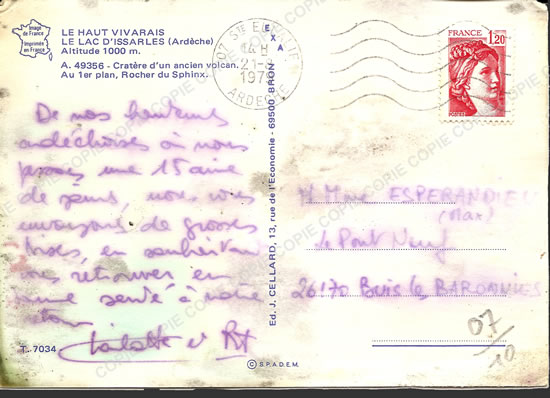 Image
de France
Imprimée
en France
LE HAUT VIVARAIS
LE LAC D'ISSARLES (Ardèche)
Altitude 1000 m.
A. 49356 - Cratère d'un ancien volcan.
Au 1er plan, Rocher du Sphinx.
EXA
07 STE EULALIE
14 H
21-
197
ARDECHE
FRANCE
1,20
De nos hauteurs
ardéchoises où nous
passons une 15aine
de jours, nous vous
envoyons de grosses
bises, en souhaitant
vous retrouver en
bonne santé à notre
retour
et
T. 7034
Ed. J. CELLARD, 13, rue de l'Economie - 69500 BRON
© S.P.A.D.E.M.
M. Mme ESPERANDIEU
(Max)
le Pont Neuf
26170 Buis les BARONNIES
07/10
COPIE COPIE COPIE